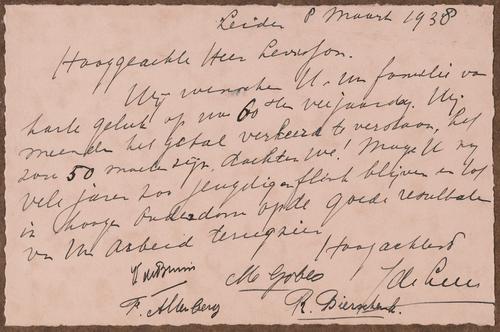 Leiden 8 Maart 1938
Hooggeachte Heer Levisson.
Wij wenschen U en Uw familie van
harte geluk op uw 60sten verjaardag. Wij
meenden het getal verkeerd te verstaan, het
zou 50 moeten zijn, dachten we! Moge U nog
vele jaren zoo jeugdig en flink blijven en tot
in hoogen Ouderdom op de goede resultaten
van Uw Arbeid terugzien
Hoogachtend
M Gobes
F. Altenberg
R. Biersteker.